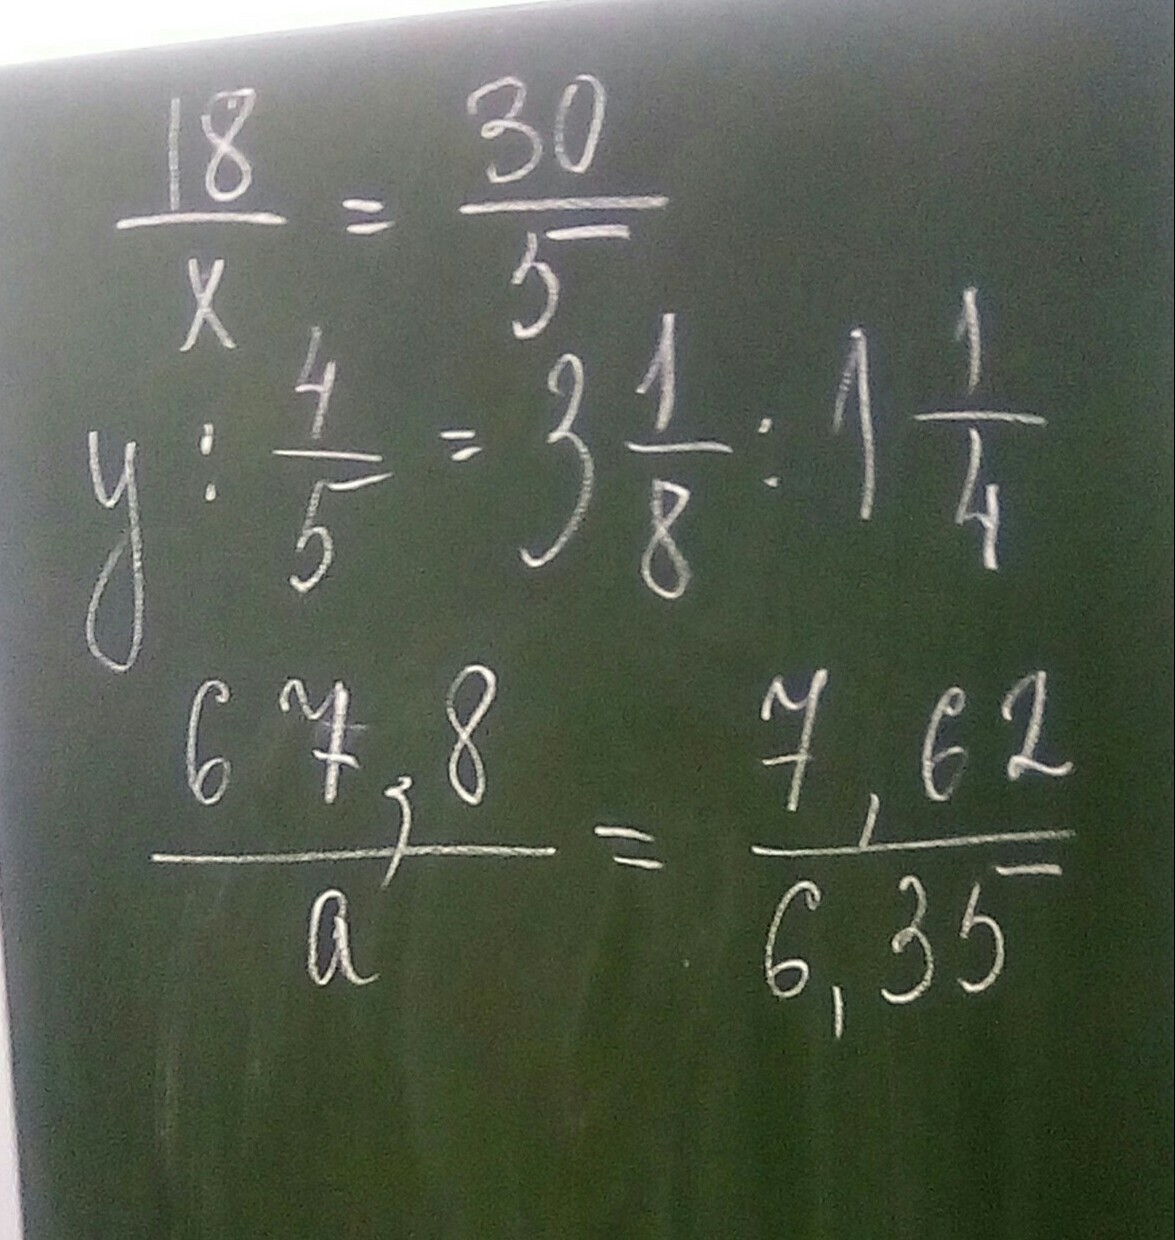 18/x = 30/5
y : 4/5 = 3 1/8 : 1 1/4
67,8/a = 7,62/6,35